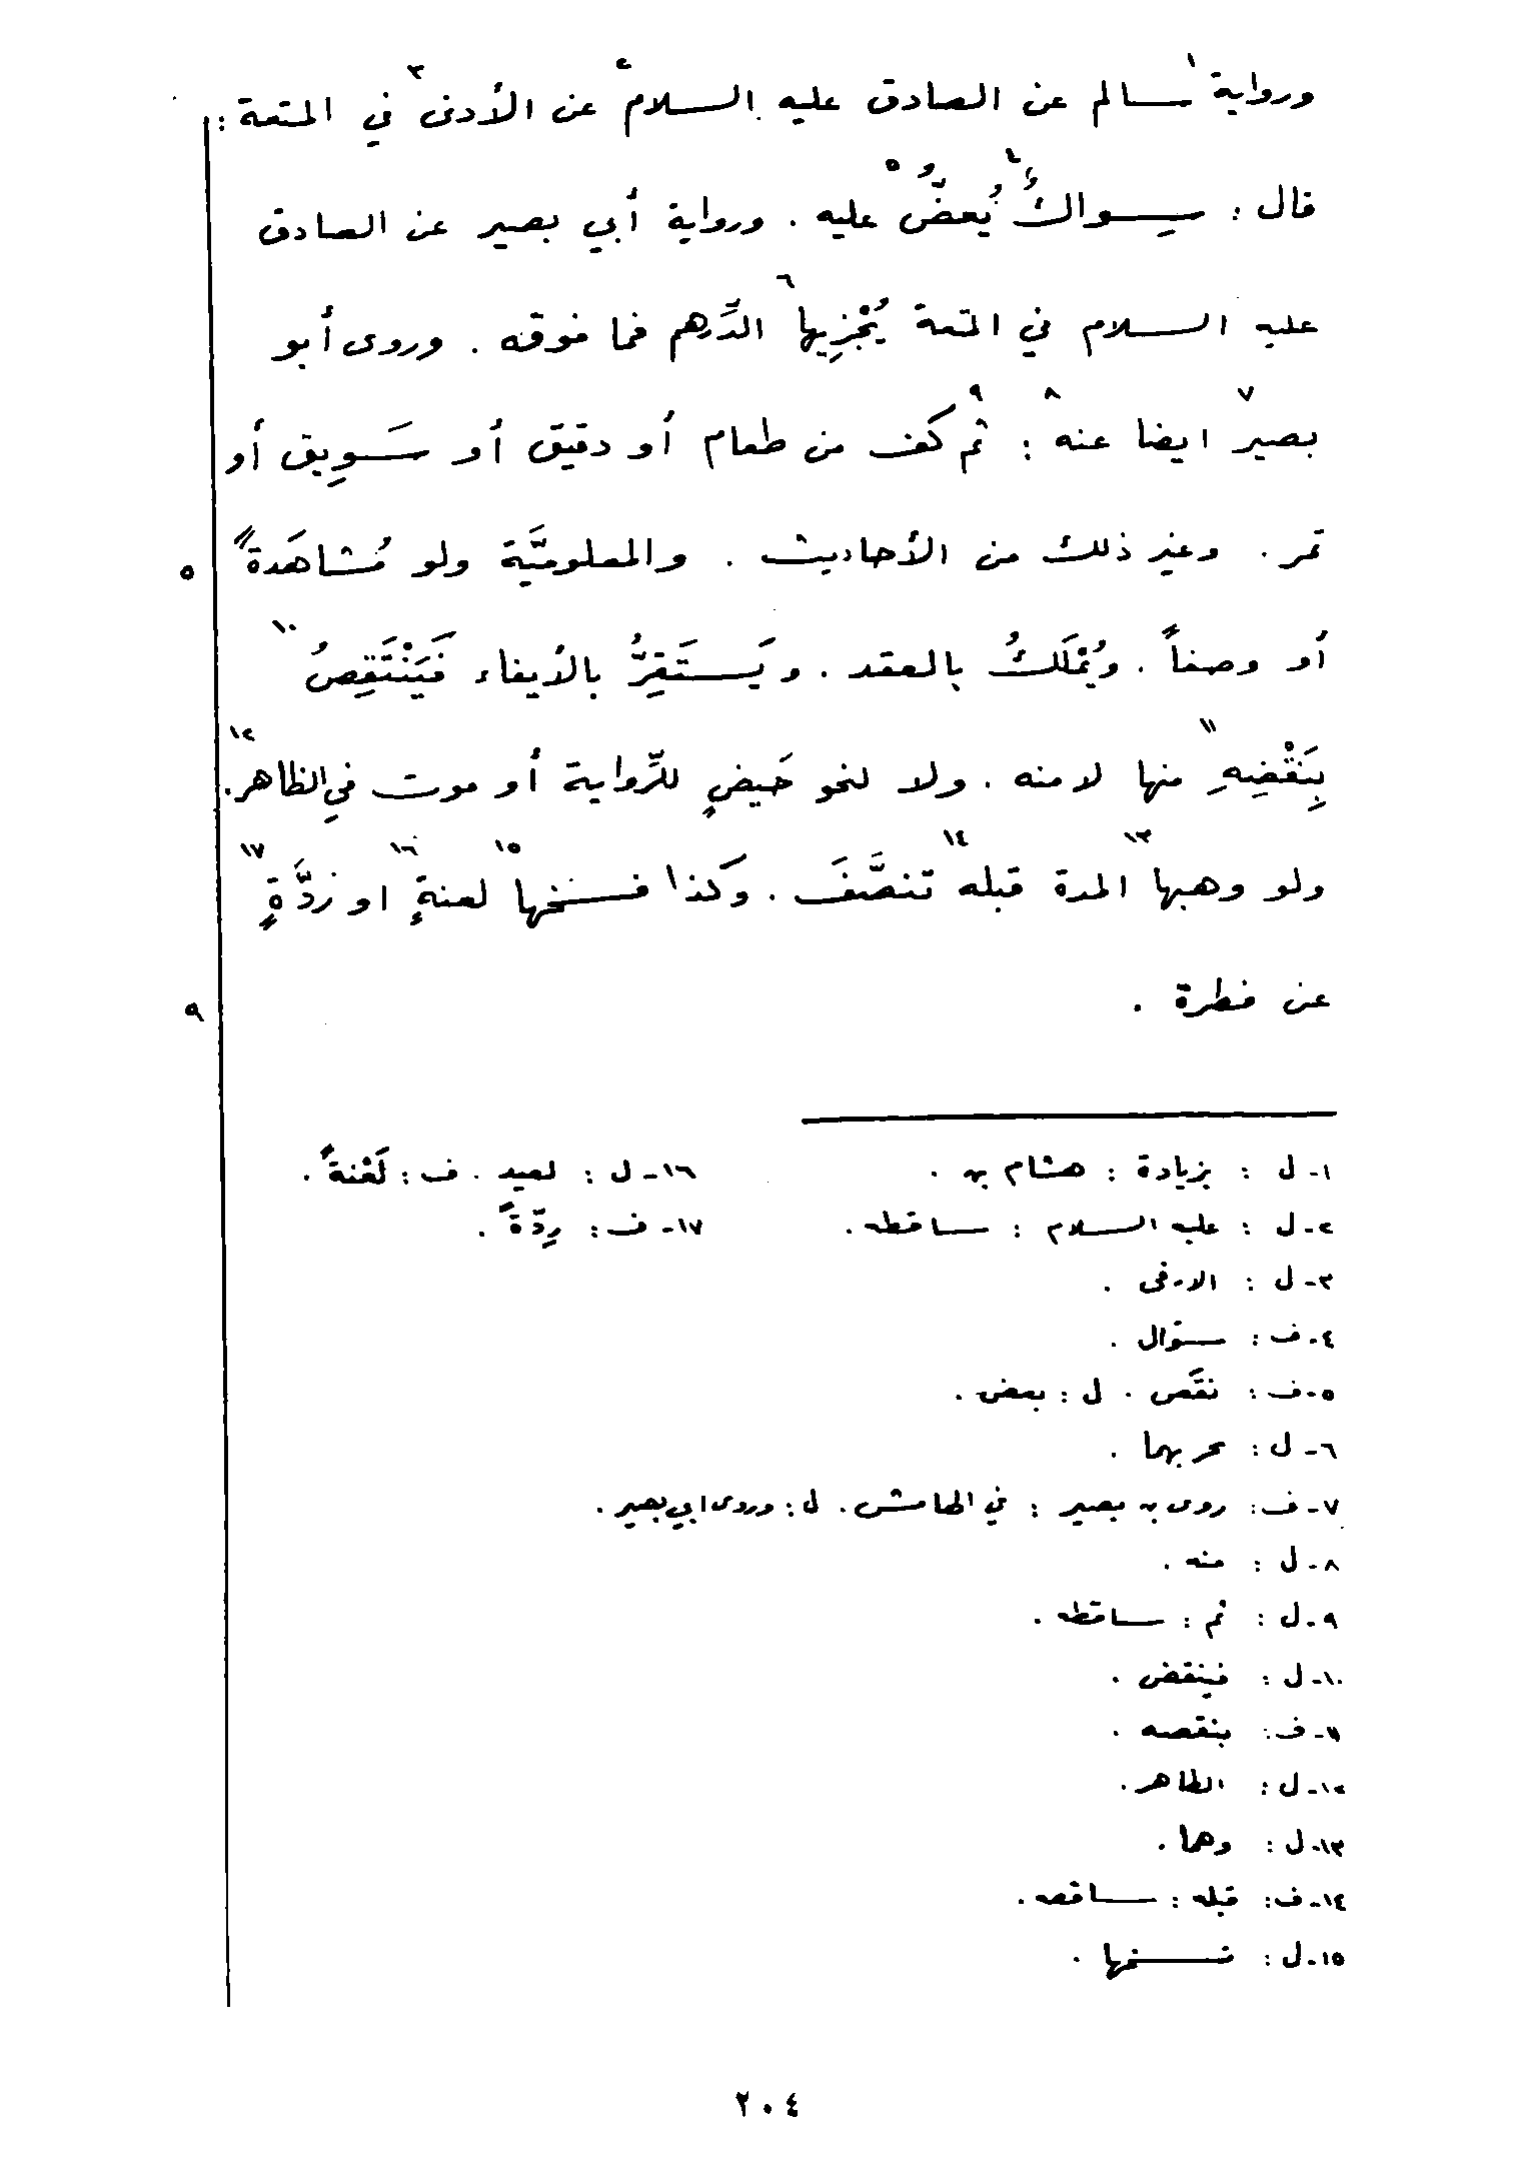 ورواية١ سالم عن الصادق عليه السلام٢ عن الأدنى٣ في المتعة :
قال : سِواكٌ٤ يُعضُّ٥ عليه . ورواية أبي بصير عن الصادق
عليه السلام في المتعة يُجْزِيها٦ الدِّرهم فما فوقه . وروى أبو
بصير٧ ايضا عنه٨ : ثم٩ كف من طعام أو دقيق أو سَويِق أو
تمر . وغير ذلك من الأحاديث . والمعلوميَّة ولو مُشاهَدةً ٥
أو وصفاً . ويُمْلَكُ بالعقد . ويَستَقِرُّ بالأيفاء فَيَنْتَقِصُ١٠
بِنَقْضِهِ١١ منها لا منه . ولا لنحو حَيضٍ للرِّواية أو موت في الظاهر١٢.
ولو وهبها١٣ المدة قبله١٤ تنصَّفَ . وكذا فسخها١٥ لعنةٍ١٦ او رَدَّةٍ١٧
عن فطرة . ٩
١- ل : بزيادة : هشام بن .
٢- ل : عليه السلام : ساقطه .
٣- ل : الادفى .
٤- ف : سؤال .
٥- ف : نقَّص . ل : بعض .
٦- ل : محربهما .
٧- ف : روى بن بصير : في الهامش . ل : وروى ابي بصير .
٨- ل : منه .
٩- ل : ثم : ساقطه .
١٠- ل : فينقض .
١١- ف : بنقصه .
١٢- ل : الطاهر .
١٣- ل : وهما .
١٤- ف : قبله : ساقصه .
١٥- ل : فسخها .
١٦- ل : لعيد . ف : لَعْنةً .
١٧- ف : رِدّةً .
٢٠٤